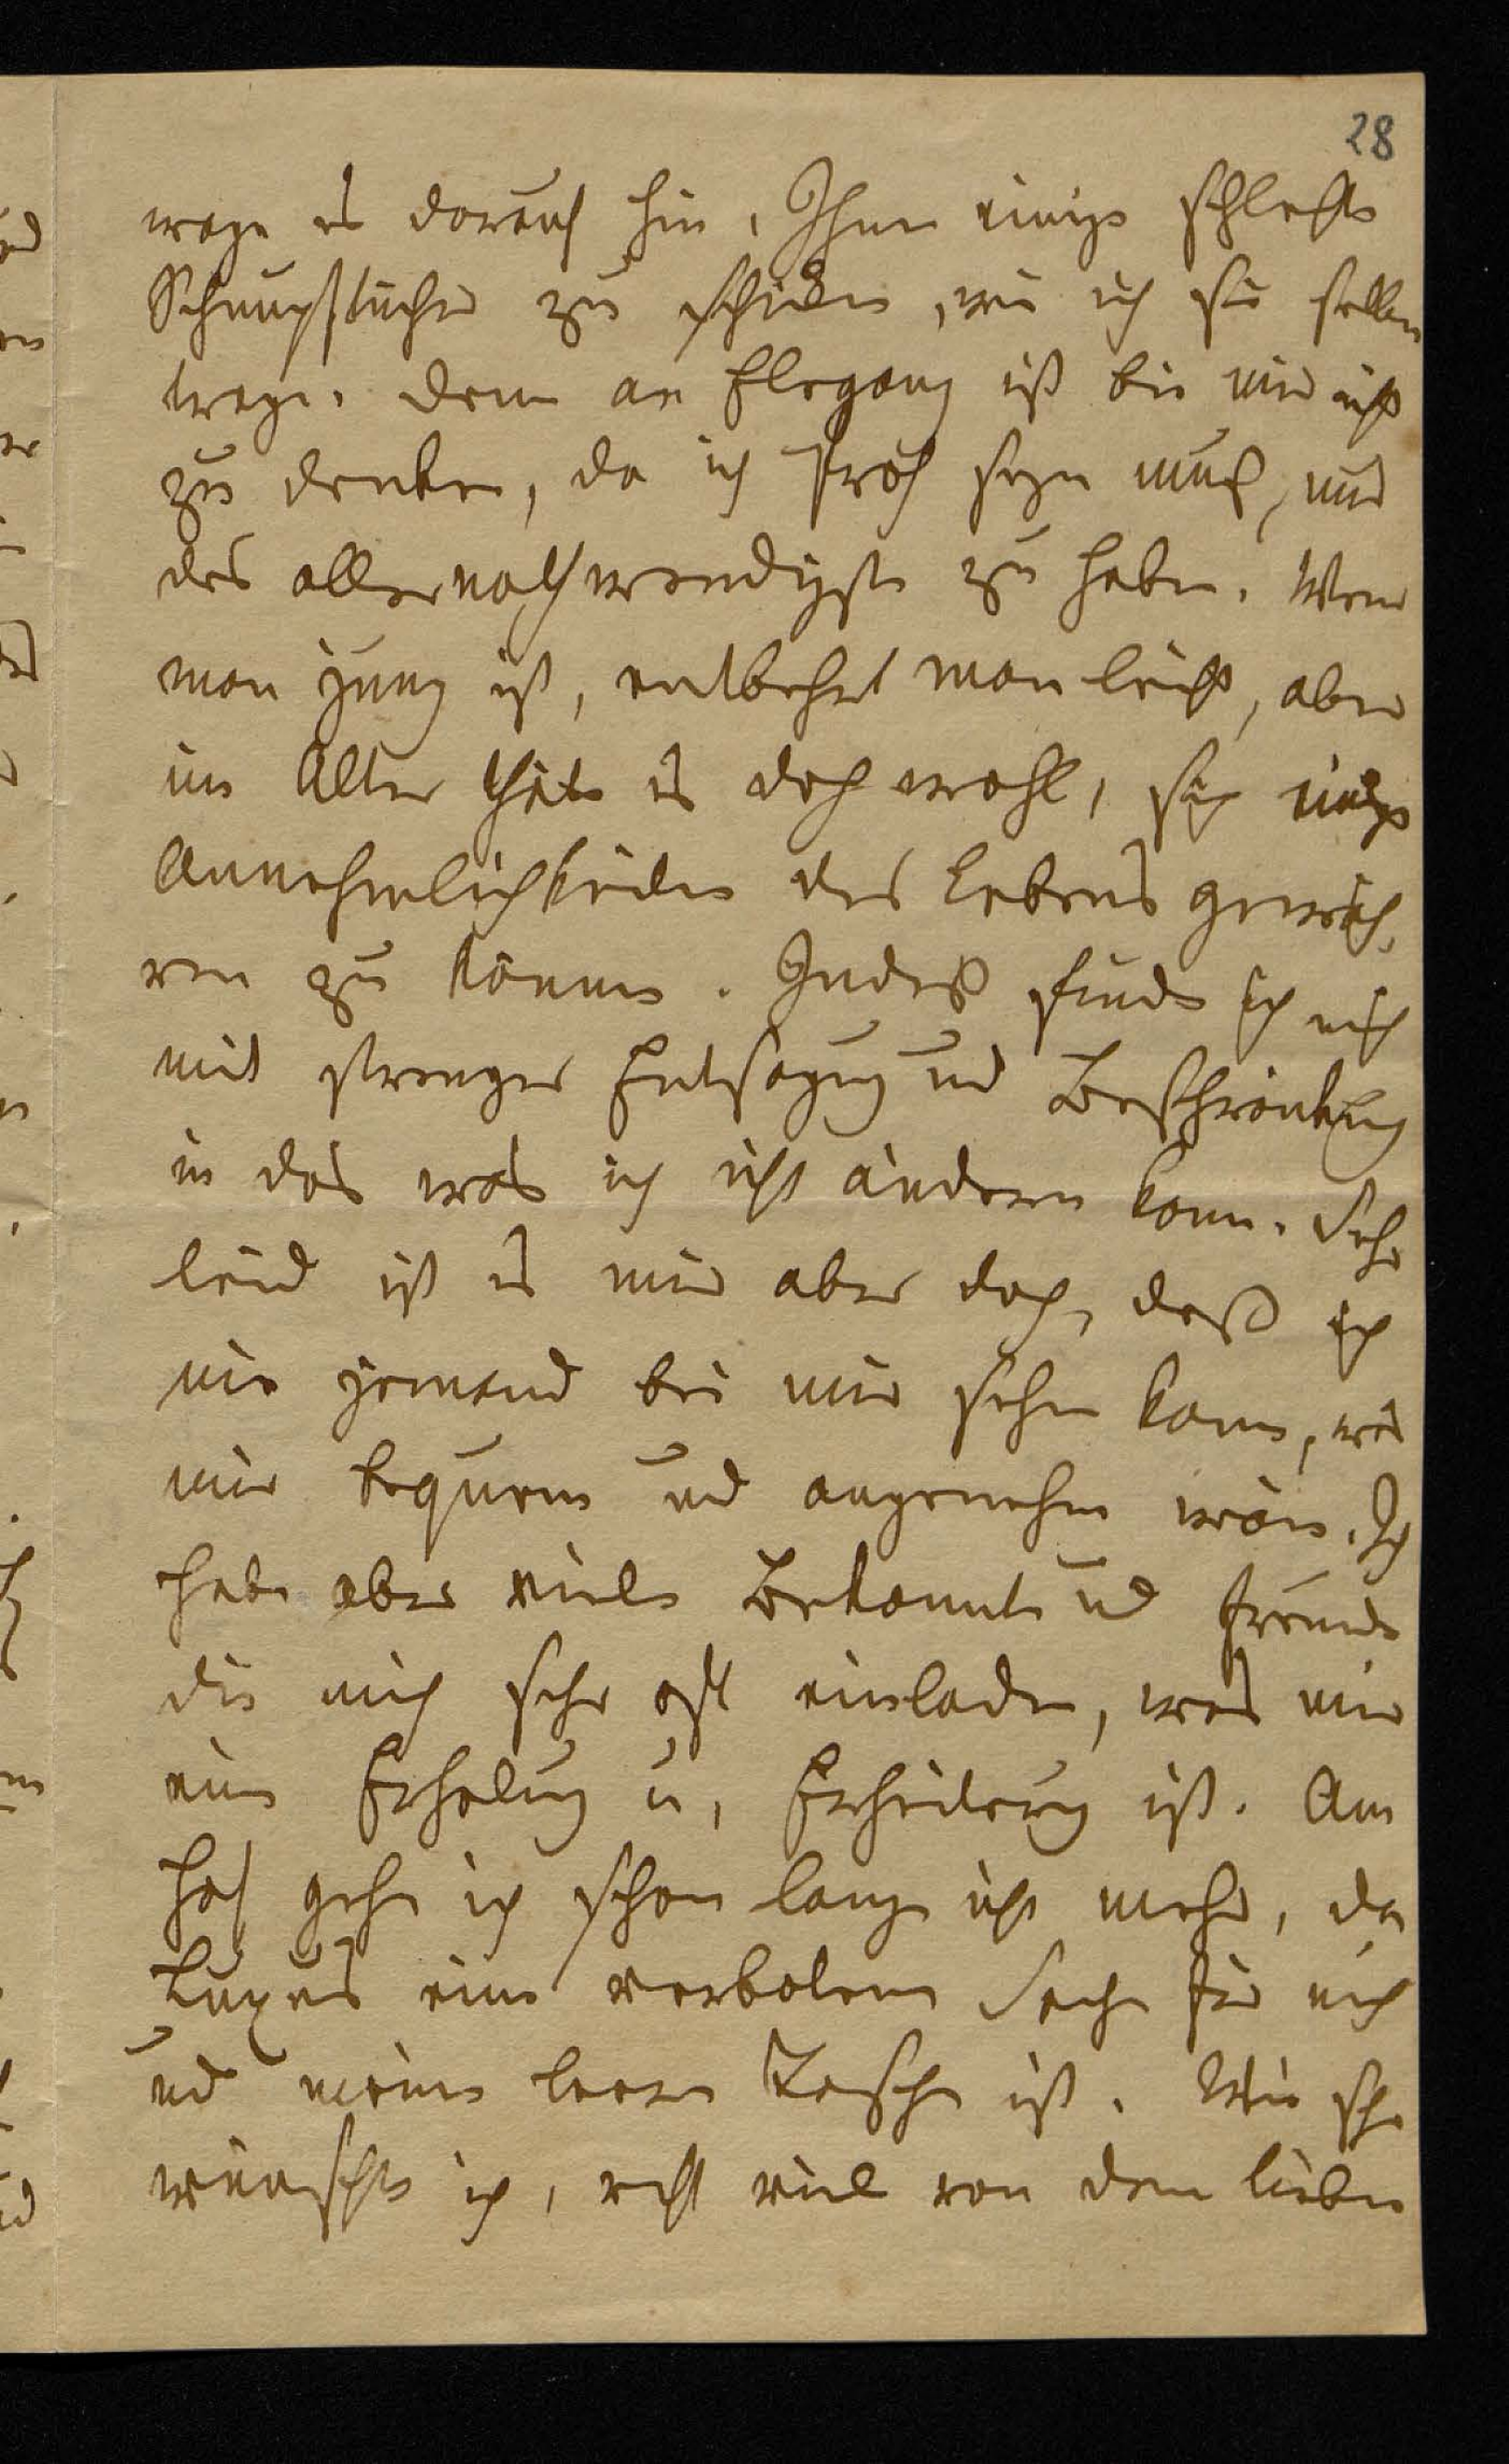 28
wage es darauf hin, Ihnen einige schlechte
Schnupftücher zu schicken, wie ich sie selbe
trage. denn an Eleganz ist bei mir nicht
zu denken, da ich froh seyn muß, nur
das allernothwendigste zu haben. Wenn
man jung ist, entbehrt man leicht, aber
im Alter thäte es doch wohl, sich einige
Annehmlichkeiten des Lebens gewäh,
ren zu können. Indeß finde ich mich
mit strenger Entsagung und Beschränkung
in das was ich nicht ändern kann. Sehr
leid ist es mir aber doch, daß ich
nie jemand bei mir sehn kann, was
mir bequem und angenehm wäre. Ich
habe aber viele Bekannte und Freunde
die mich sehr oft einladen, was mir
eine Erholung u, Erheiterung ist. Am
Hof gehe ich schon lange nicht mehr, da
Luxus eine verbotene Sache für mich
und meine leere Tasche ist. Wie sehr
wünschte ich, recht viel von dem lieben